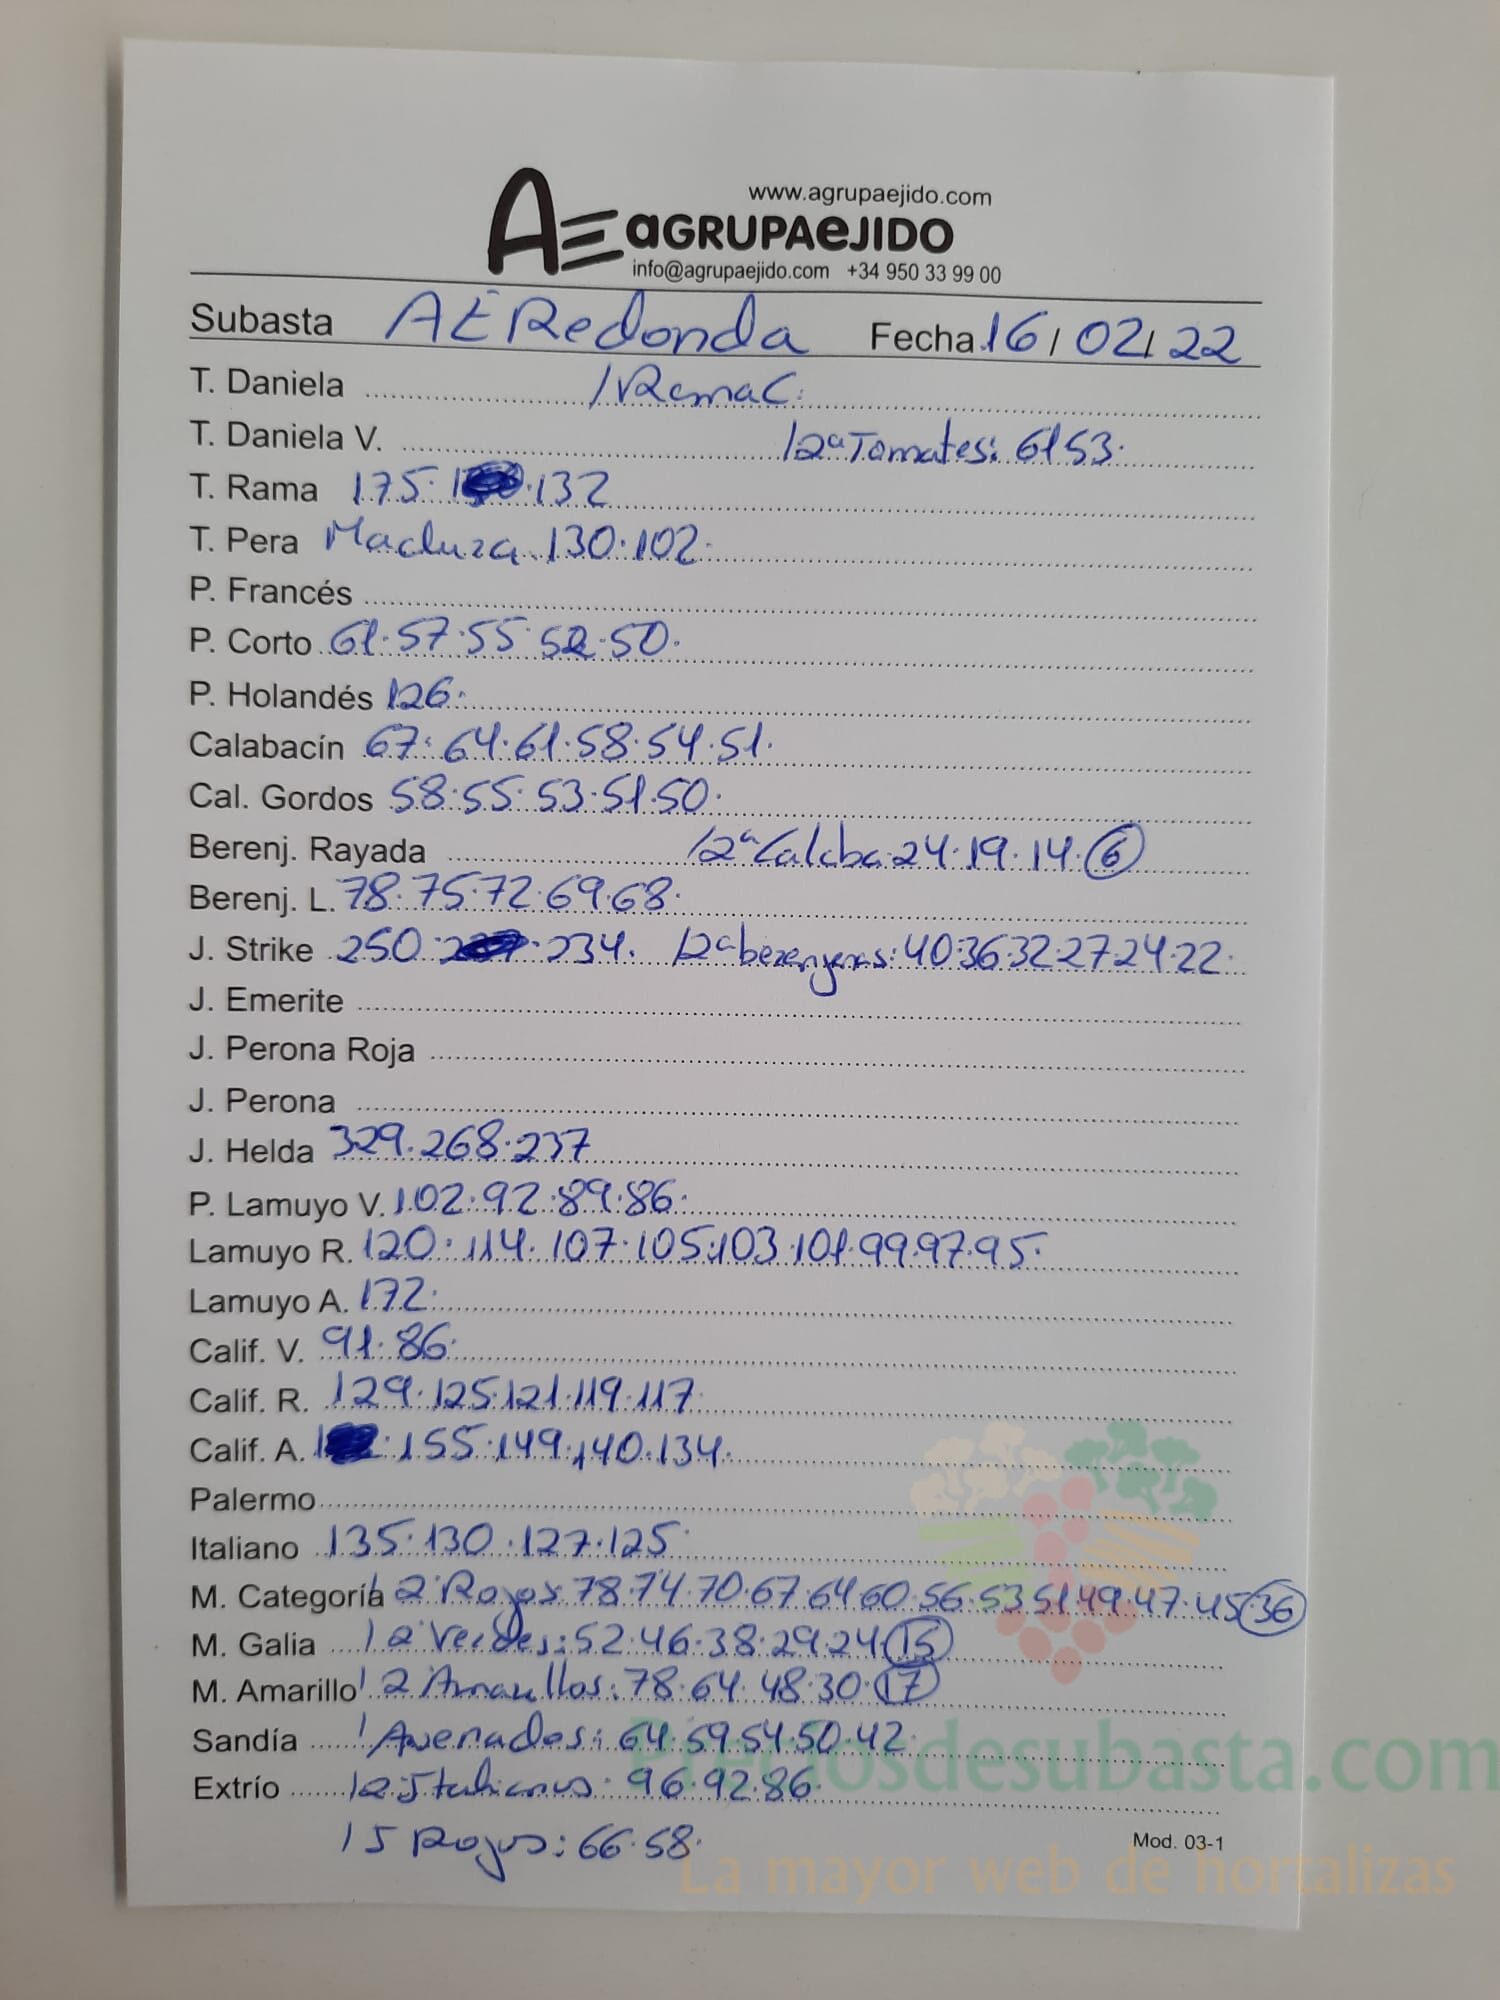 www.agrupaejido.com
AE aGRUPAeJIDO
info@agrupaejido.com +34 950 33 99 00
Subasta AE Redonda Fecha 16/02/22
T. Daniela
T. Daniela V. /2ª Tomates: 61 53.
T. Rama 175. 132
T. Pera Madura. 130.102.
P. Francés
P. Corto 61.57.55 52.50.
P. Holandés 126.
Calabacín 67.64.61.58.54.51.
Cal. Gordos 58.55.53.51.50.
Berenj. Rayada /2ª Calaba 24.19.14.6
Berenj. L. 78.75.72.69.68.
J. Strike 250. 234. /2ª berenjenas: 40.36.32.27.24.22.
J. Emerite
J. Perona Roja
J. Perona
J. Helda 329.268.237
P. Lamuyo V. 102.92.89.86.
Lamuyo R. 120.114.107.105.103.101.99.97.95.
Lamuyo A. 172.
Calif. V. 91.86.
Calif. R. 129.125.121.119.117.
Calif. A. 155.149.140.134.
Palermo
Italiano 135.130.127.125.
M. Categoría / 2ª Rojos 78.74.70.67.64.60.56.53.51.49.47.45 36
M. Galia / 2ª Verdes: 52.46.38.29.24 15
M. Amarillo / 2 Amarillos: 78.64.48.30.17
Sandía / Asenados: 64.59.54.50.42.
Extrío / 2ª Italianos: 96.92.86.
/ 5 Rojos: 66.58.
Mod. 03-1
Preciosdesubasta.com
La mayor web de hortalizas